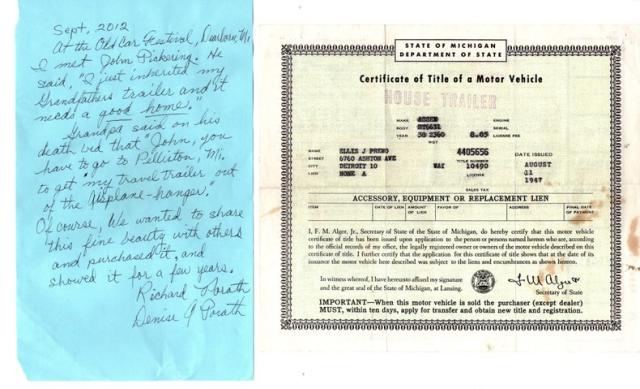 Sept, 2012
At the Old Car Festival, Dearborn, Mi.
I met John Pickering. He
said, "I just inherited my
Grandfathers trailer and it
needs a good home."
Grandpa said on his
death bed that "John, you
have to go to Pellston, Mi.
to get "my travel trailer out
of the Airplane-hanger."
Of course, We wanted to share
this fine beauty with others
and purchased it, and
showed it for a few years.
Richard Porath
Denise A Porath
STATE OF MICHIGAN
DEPARTMENT OF STATE
Certificate of Title of a Motor Vehicle
HOUSE TRAILER
MAKE ENGINE
BODY SERIAL
YEAR 38 2360 8.05 LICENSE FEE
WGT
NAME ELLIS J PRENO 4405656 DATE ISSUED
STREET 6760 ASHTON AVE TITLE NUMBER
CITY DETROIT 10 WAY 10490 AUGUST
LIEN NONE A LICENSE 21
1947
SALES TAX
ACCESSORY, EQUIPMENT OR REPLACEMENT LIEN
ITEM DATE OF LIEN AMOUNT OF LIEN FAVOR OF ADDRESS FINAL DATE OF PAYMENT
I, F. M. Alger, Jr., Secretary of State of the State of Michigan, do hereby certify that this motor vehicle
certificate of title has been issued upon application to the person or persons named hereon who are, according
to the official records of my office, the legally registered owner or owners of the motor vehicle described on this
certificate of title. I further certify that the application for this certificate of title shows that at the date of its
issuance the motor vehicle here described was subject to the liens and encumbrances as shown hereon.
In witness whereof, I have hereunto affixed my signature
and the great seal of the State of Michigan, at Lansing.
Secretary of State
IMPORTANT—When this motor vehicle is sold the purchaser (except dealer)
MUST, within ten days, apply for transfer and obtain new title and registration.